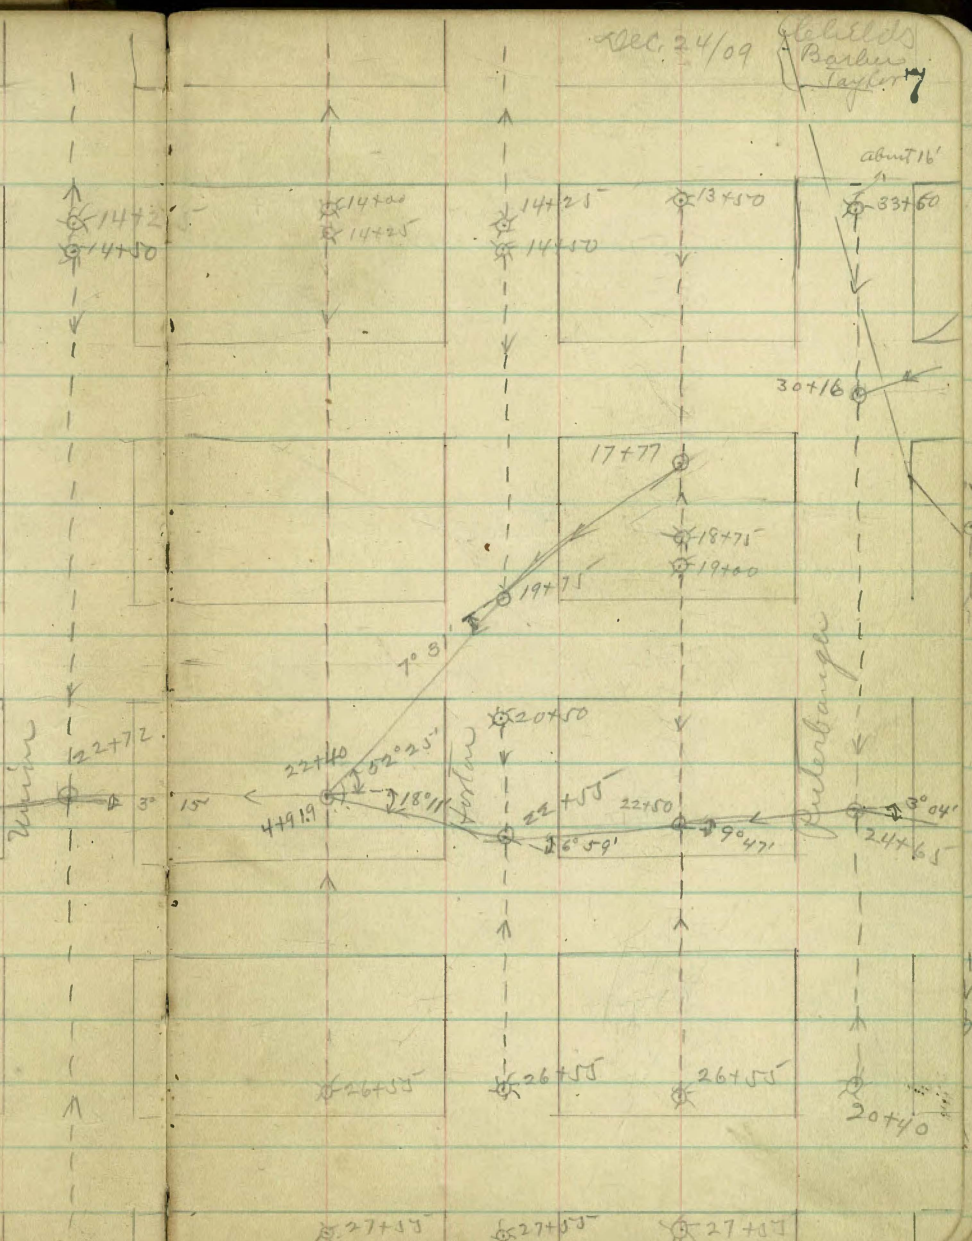 Dec. 24/09
Childs
Barber
Taylor
7
about 16'
14+25
14+50
14+00
14+25
14+25
14+50
13+50
33+60
30+16
17+77
18+75
19+00
19+75
7° 31'
20+50
Union
22+72
3° 15'
22+40
52° 25'
4+91.9
18°11'
22+55
6° 59'
22+50
9° 47'
3° 04'
24+65
26+55
26+55
26+55
20+40
27+55
27+55
27+55